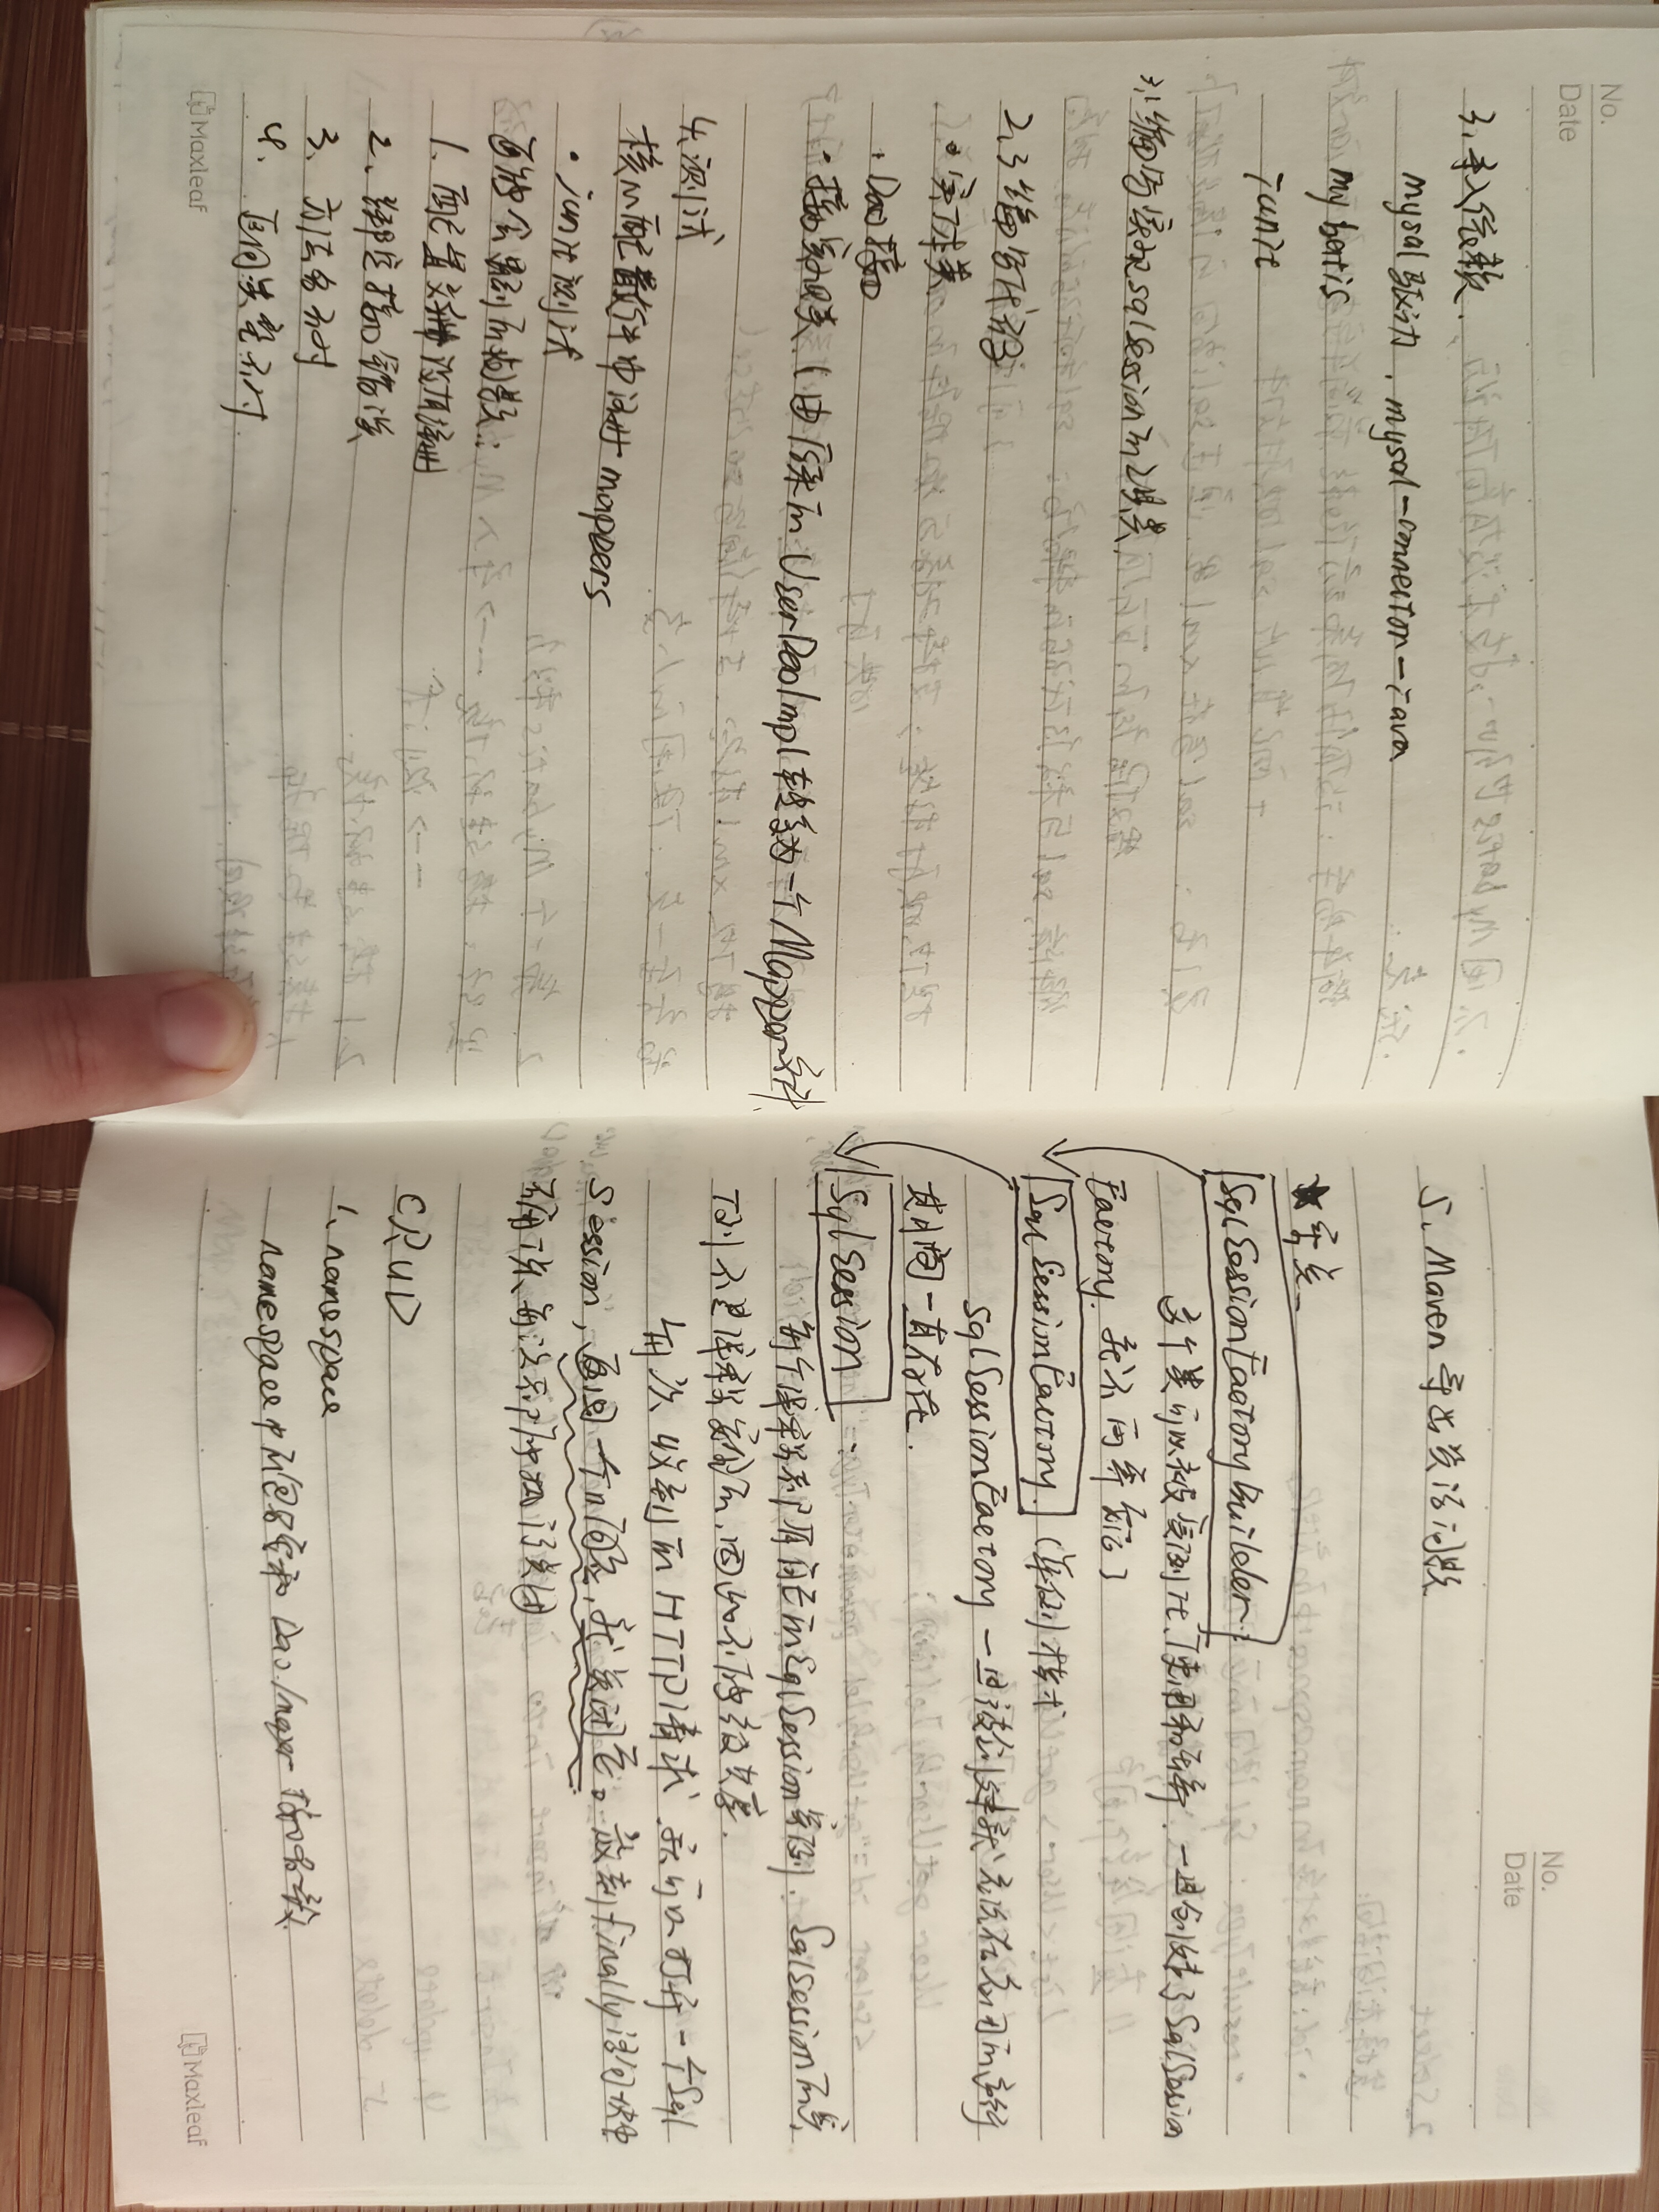 No.
Date
3.导入依赖.
mysql驱动. mysql-connector-java
mybatis
junit
3.1编写读取sqlsession的工具类
2.3编写代码
·实体类
·Dao接口
·接口实现类(由原来的UserDaoImpl转变为一个Mapper文件
4.测试
核心配置文件中注册mappers
·junit测试
可能会遇到的问题:
1.配置文件没有注册
2.绑定接口错误
3.方法名不对
4.返回类型不对
Maxleaf
No.
Date
5.Maven导出资源问题
SqlSessionFactoryBuilder
多个类可以被实例化、使用和丢弃.一旦创建了SqlSession
Factory.就不再需要它了
SqlSessionFactory.(单例模式
SqlSessionFactory一旦被创建就应该在应用的运行
期间一直存在.
SqlSession
每个线程都应有自己的SqlSession实例.SqlSession的实
例不是线程安全的,因此不能被共享.
每次收到的HTTP请求.就可以打开一个Sql
Session,返回一个响应,就关闭它。放到finally语句块中
确保每次都能执行关闭
CRUD
1.namespace
namespace中的包名要和Dao/mapper接口一致
Maxleaf